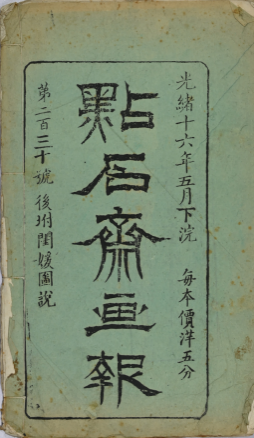 光緒十六年五月下浣　每本價洋五分
點石齋画報
第二百三十號　後坿閨媛圖說